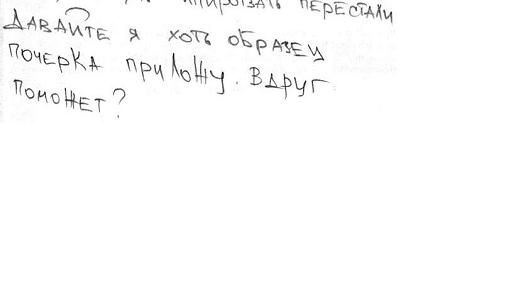 ПЕРЕСТАЛИ
ДАВАЙТЕ Я ХОТЬ ОБРАЗЕЦ
ПОЧЕРКА ПРИЛОЖУ. ВДРУГ
ПОМОЖЕТ?